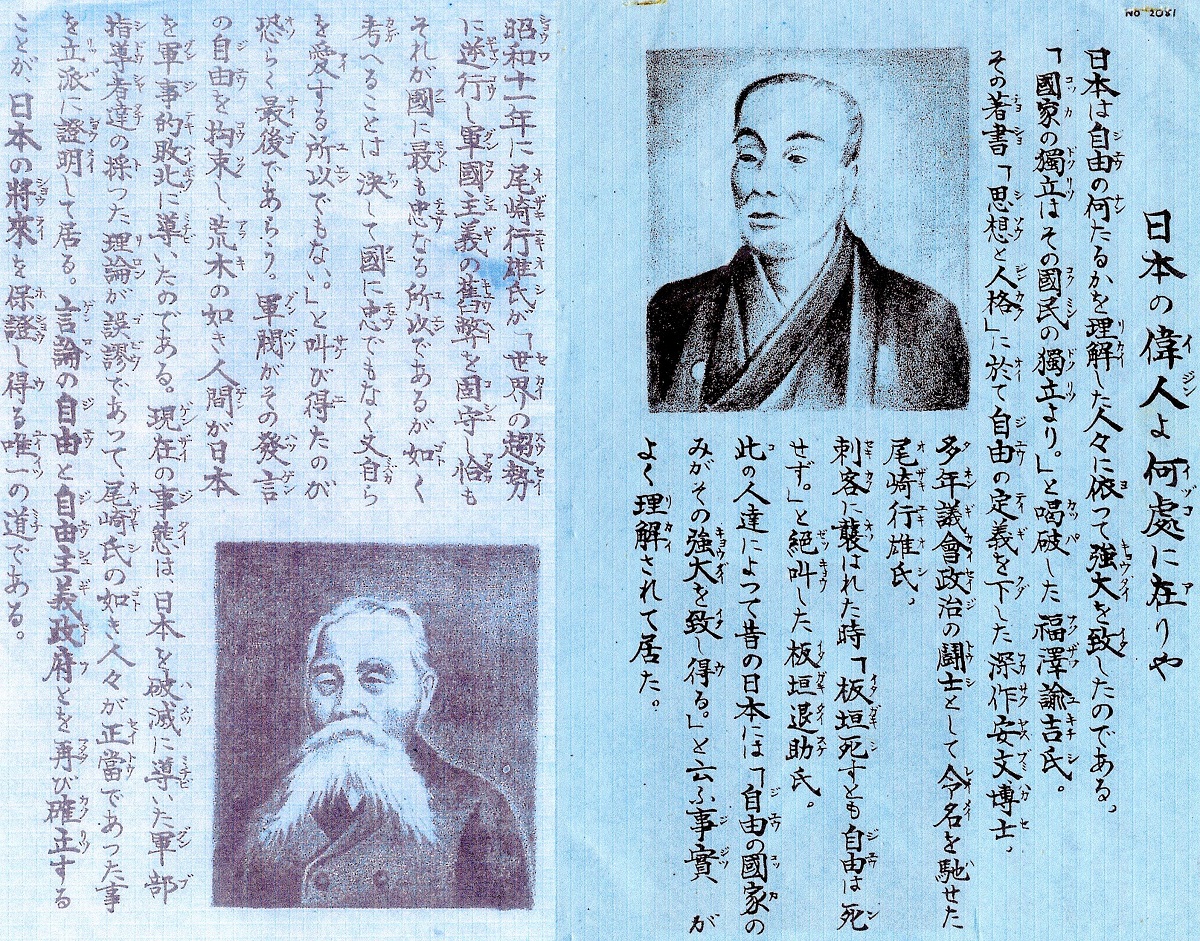 No 2051
日本の偉人よ何處に在りや
日本は自由の何たるかを理解した人々に依って強大を致したのである。
「國家の獨立はその國民の獨立より。」と喝破した福澤諭吉氏。
その著書「思想と人格」に於て自由の定義を下した深作安文博士。
多年議會政治の闘士として令名を馳せた
尾崎行雄氏。
刺客に襲はれた時「板垣死すとも自由は死
せず。」と絕叫した板垣退助氏。
此の人達によって昔の日本には「自由の國家の
みがその強大を致し得る。」と云ふ事實が
よく理解されて居た。
昭和十一年に尾崎行雄氏が「世界の趨勢
に逆行し軍國主義の舊弊を固守し恰も
それが國に最も忠なる所以であるが如く
考へることは決して國に忠でもなく又自ら
を愛する所以でもない。」と叫び得たのが
恐らく最後であらう。軍閥がその發言
の自由を拘束し、荒木の如き人間が日本
を軍事的敗北に導いたのである。現在の事態は、日本を破滅に導いた軍部
指導者達の採った理論が誤謬であって、尾崎氏の如き人々が正當であった事
を立派に證明して居る。言論の自由と自由主義政府とを再び確立する
ことが、日本の將來を保證し得る唯一の道である。